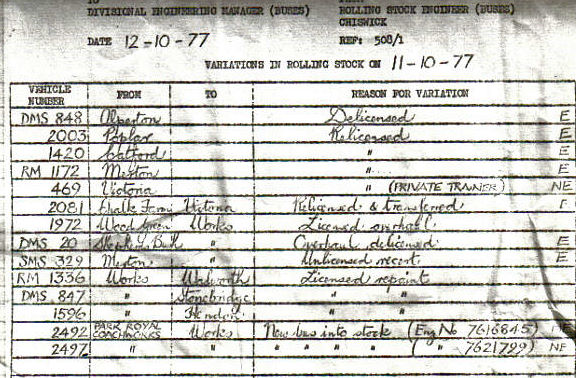 TO
DIVISIONAL ENGINEERING MANAGER (BUSES) ROLLING STOCK ENGINEER (BUSES)
CHISWICK
DATE 12-10-77 REF: 508/1
VARIATIONS IN ROLLING STOCK ON 11-10-77
VEHICLE NUMBER FROM TO REASON FOR VARIATION
DMS 848 Alperton Delicensed E
2003 Poplar Relicensed E
1420 Catford " E
RM 1172 Merton " E
469 Victoria " (PRIVATE TRAINER) NE
2081 Chalk Farm Victoria Relicensed & transferred
1972 Wood Green Works Licensed overhaul
DMS 20 Sheph's Bush " Overhaul delicensed E
SMS 329 Merton " Unlicensed recert E
RM 1336 Works Walworth Licensed repaint
DMS 847 " Stonebridge " "
1596 " Hendon " "
2492 PARK ROYAL COACHWORKS Works New bus into stock (Eng No 7616845) NE
2497 " " " " " " ( " 7621799) NE